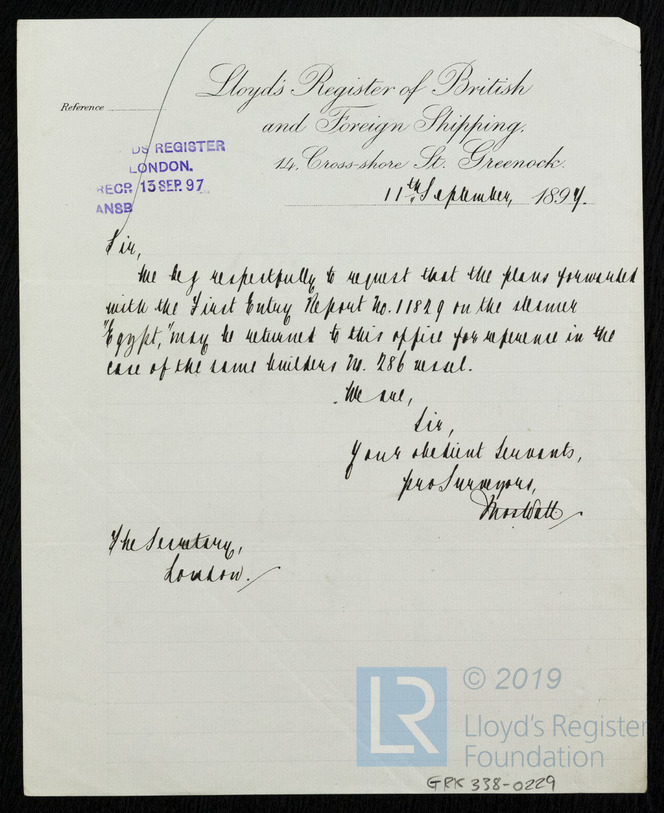 Lloyd's Register of British
and Foreign Shipping.
Reference
14, Cross-shore St. Greenock.
DS REGISTER
LONDON.
RECP. 13 SEP. 97
ANSD
11th September, 1897.
Sir,
We beg respectfully to request that the plans forwarded
with the First Entry Report No. 11829 on the steamer
"Egypt," may be returned to this office for reference in the
case of the same builders No. 286 vessel.
We are,
Sir,
Your obedient Servants,
pro Surveyors,
The Secretary,
London.
LR
© 2019
Lloyd's Register
Foundation
GRK 338-0229